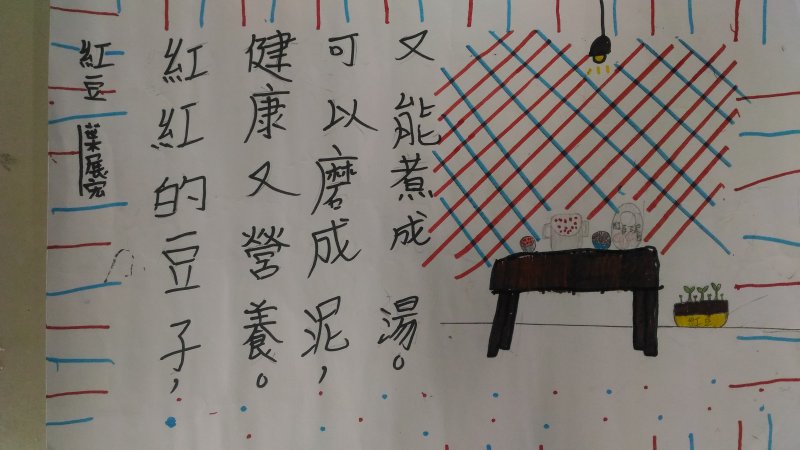 紅豆 葉展宏
紅紅的豆子，
健康又營養。
可以磨成泥，
又能煮成湯。
紅豆